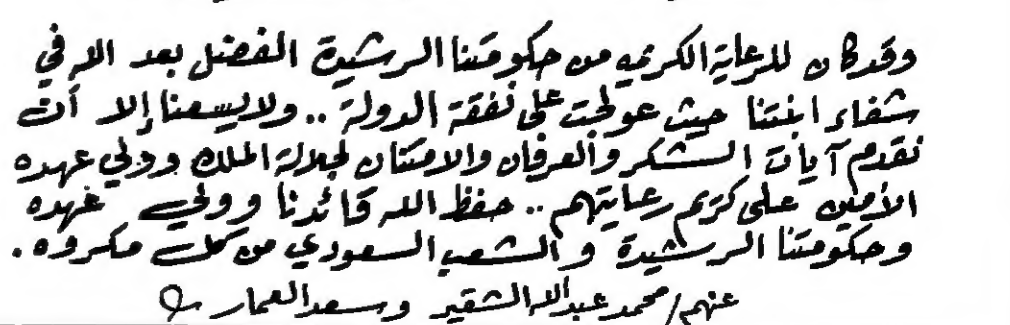 وقد كان للرعاية الكريمه من حكومتنا الرشيدة الفضل بعد الله في
شفاء ابنتنا حيث عولجت على نفقة الدولة .. ولا يسعنا إلا أن
نقدم آيات الشكر والعرفان والامتنان لجلالة الملك وولي عهده
الأمين على كريم رعايتهم .. حفظ الله قائدنا وولي عهده
وحكومتنا الرشيدة والشعب السعودي من كل مكروه .
عنهم / محمد عبدالله الشقير وسعد العمار